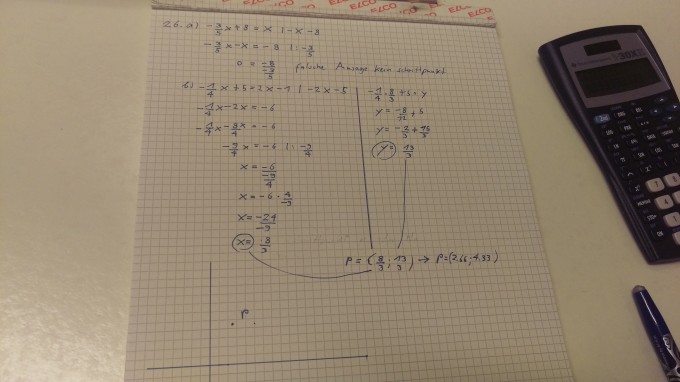 ELCO ELCO ELCO ELCO
26. a) -3/5 x + 8 = x | -x -8
-3/5 x - x = -8 | : -3/5
0 = -8/(-3/5) falsche Aussage kein Schnittpunkt
b) -1/4 x + 5 = 2x - 1 | -2x -5
-1/4 x - 2x = -6
-1/4 x - 8/4 x = -6
-9/4 x = -6 | : -9/4
x = -6/(-9/4)
x = -6 · 4/-9
x = -24/-9
x = 8/3
-1/4 · 8/3 + 5 = y
y = -8/12 + 5
y = -2/3 + 15/3
y = 13/3
P = (8/3 ; 13/3) → P = (2,66 ; 4,33)
P
30X